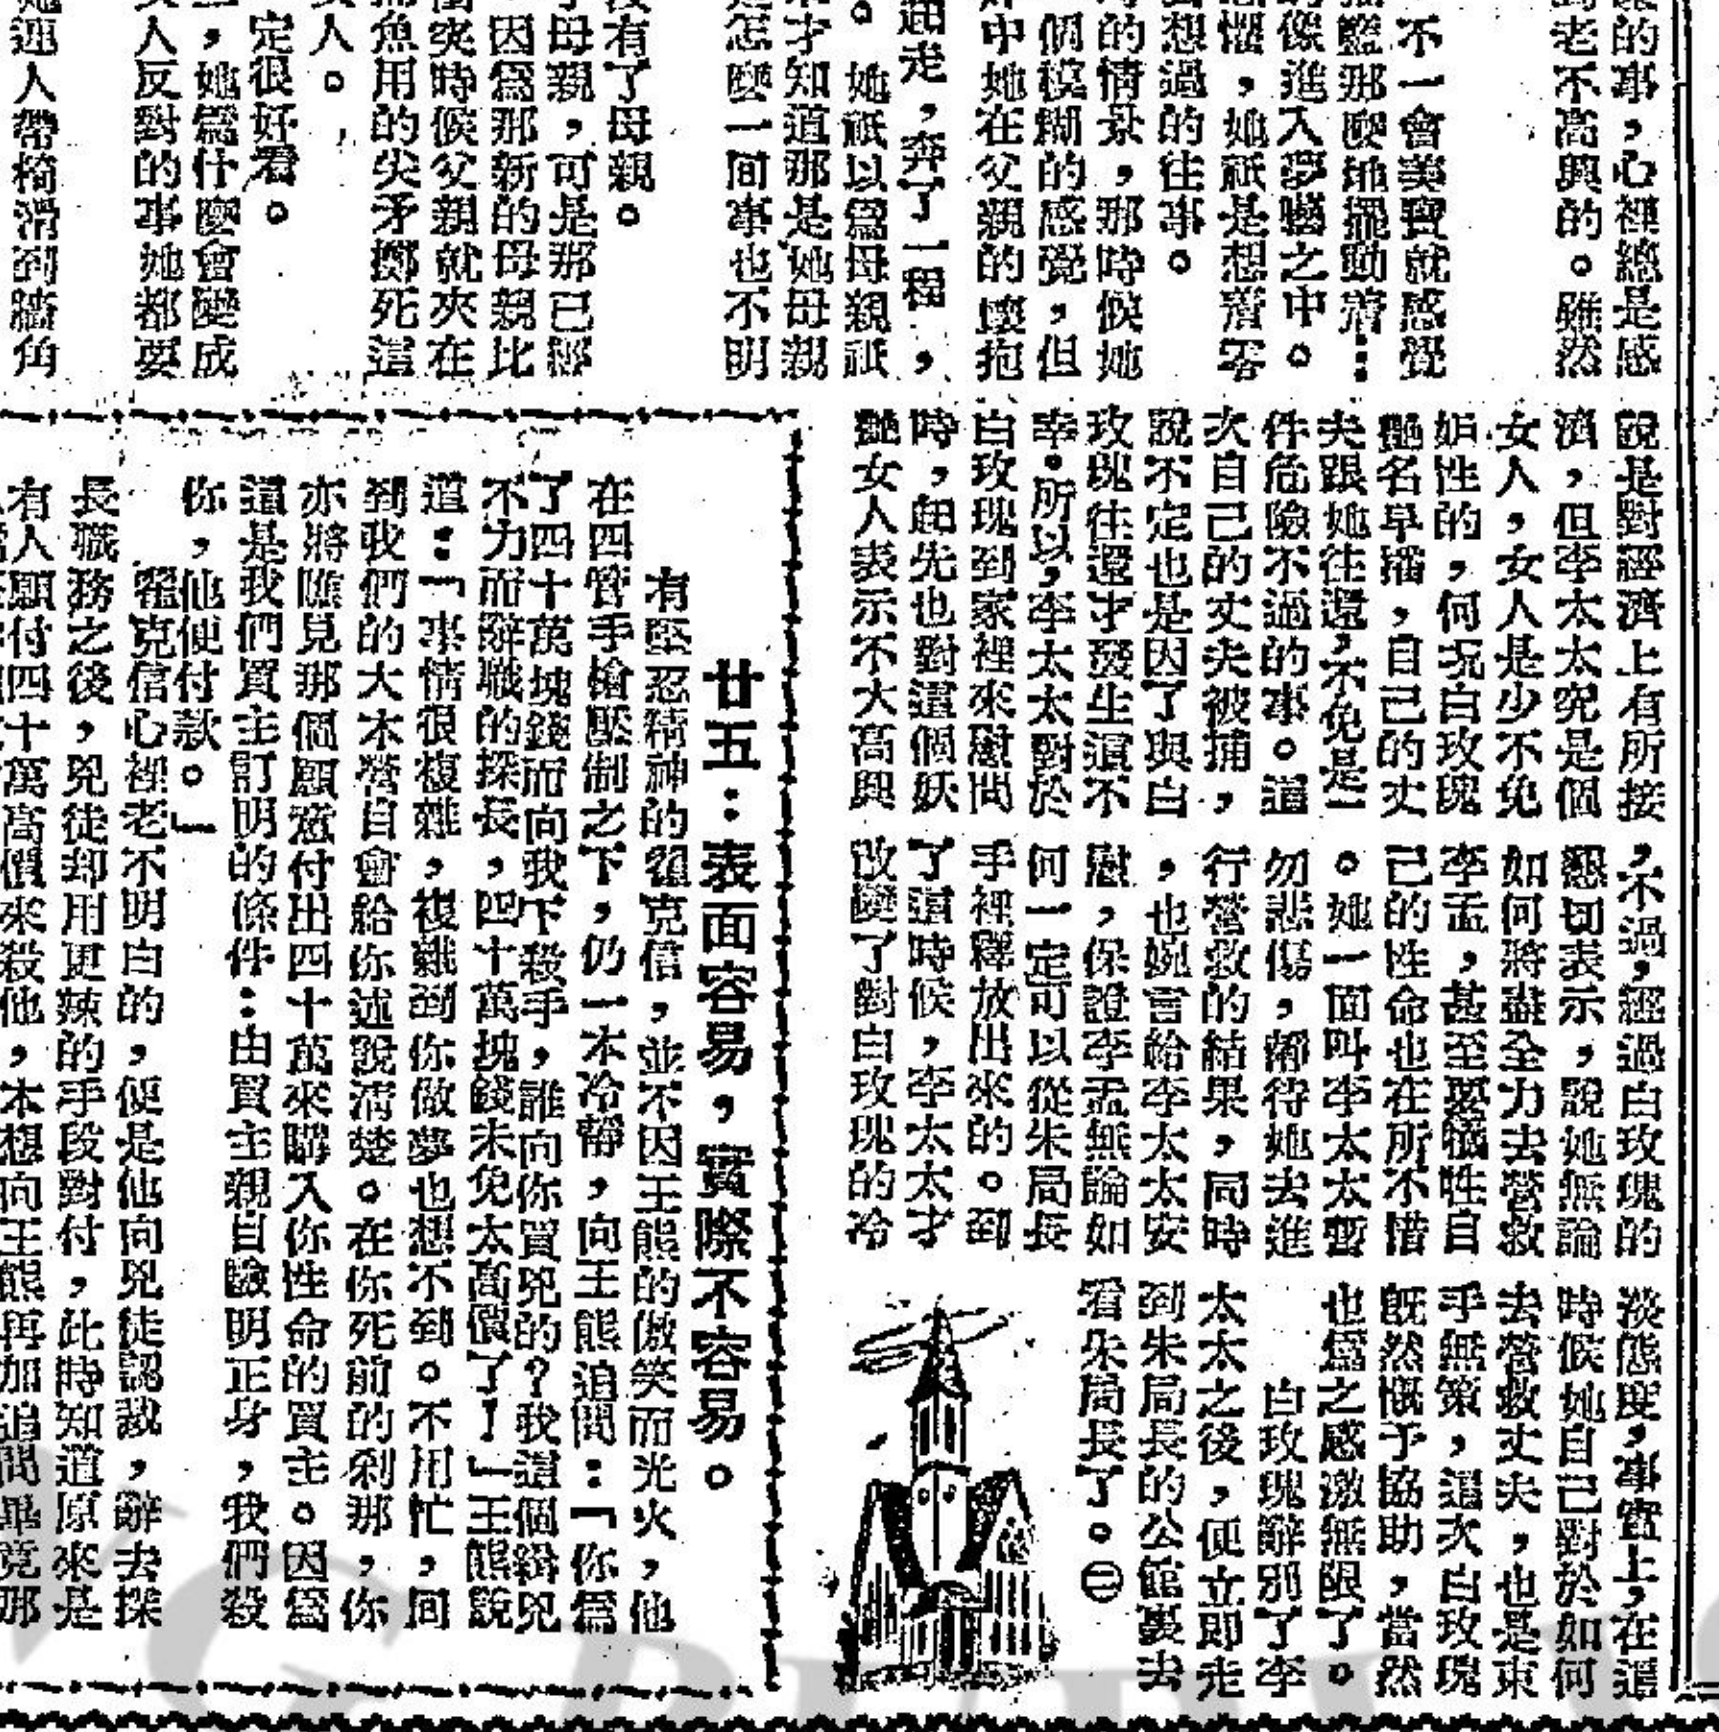 的事，心裡總是感
老不高興的。雖然
不一會美寶就感覺
籃那麼地擺動着⋮
的像進入夢囈之中。
懼，她祇是想着零
想過的往事。
的情景，那時候她
個模糊的感覺，但
中她在父親的懷抱
起走，奔了一程，
。她祇以爲母親祇
才知道那是她母親
怎麼一間事也不明
有了母親。
母親，可是那已經
因爲那新的母親比
突時候父親就夾在
魚用的尖矛擲死這
人。
定很好看。
，她爲什麼會變成
人反對的事她都要
連人帶椅滑到牆角
說是對經濟上有所接
濟，但李太太究是個
女人，女人是少不免
妒性的，何况白玫瑰
艷名早播，自己的丈
夫跟她往還，不免是一
件危險不過的事。這
次自己的丈夫被捕，
說不定也是因了與白
玫瑰往還才發生這不
幸。所以，李太太對於
白玫瑰到家裡來慰問
時，起先也對這個妖
艷女人表示不大高興
，不過，經過白玫瑰的
懇切表示，說她無論
如何將盡全力去營救
李孟，甚至要犧牲自
己的性命也在所不惜
。她一面叫李太太暫
勿悲傷，靜待她去進
行營救的結果，同時
，也婉言給李太太安
慰，保證李孟無論如
何一定可以從朱局長
手裡釋放出來的。到
了這時候，李太太才
改變了對白玫瑰的冷
淡態度，事實上，在這
時候她自己對於如何
去營救丈夫，也是束
手無策，這次白玫瑰
既然慨予協助，當然
也爲之感激無限了。
白玫瑰辭別了李
太太之後，便立即走
到朱局長的公館裏去
看朱局長了。㊂
廿五：表面容易，實際不容易。
有堅忍精神的翟克信，並不因王熊的傲笑而光火，他
在四管手槍壓制之下，仍一本冷靜，向王熊追問：「你爲
了四十萬塊錢而向我下殺手，誰向你買兇的？我這個緝兇
不力而辭職的探長，四十萬塊錢未免太高價了！」王熊說
道：「事情很複雜，複雜到你做夢也想不到。不用忙，回
到我們的大本營自會給你述說清楚。在你死前的刹那，你
亦將瞧見那個願意付出四十萬來購入你性命的買主。因爲
這是我們買主訂明的條件：由買主親自驗明正身，我們殺
你，他便付款。」
翟克信心裡老不明白的，便是他向兇徒認栽，辭去探
長職務之後，兇徒却用更辣的手段對付，此時知道原來是
有人願付四十萬高價來殺他，本想向王熊再加追問畢竟那